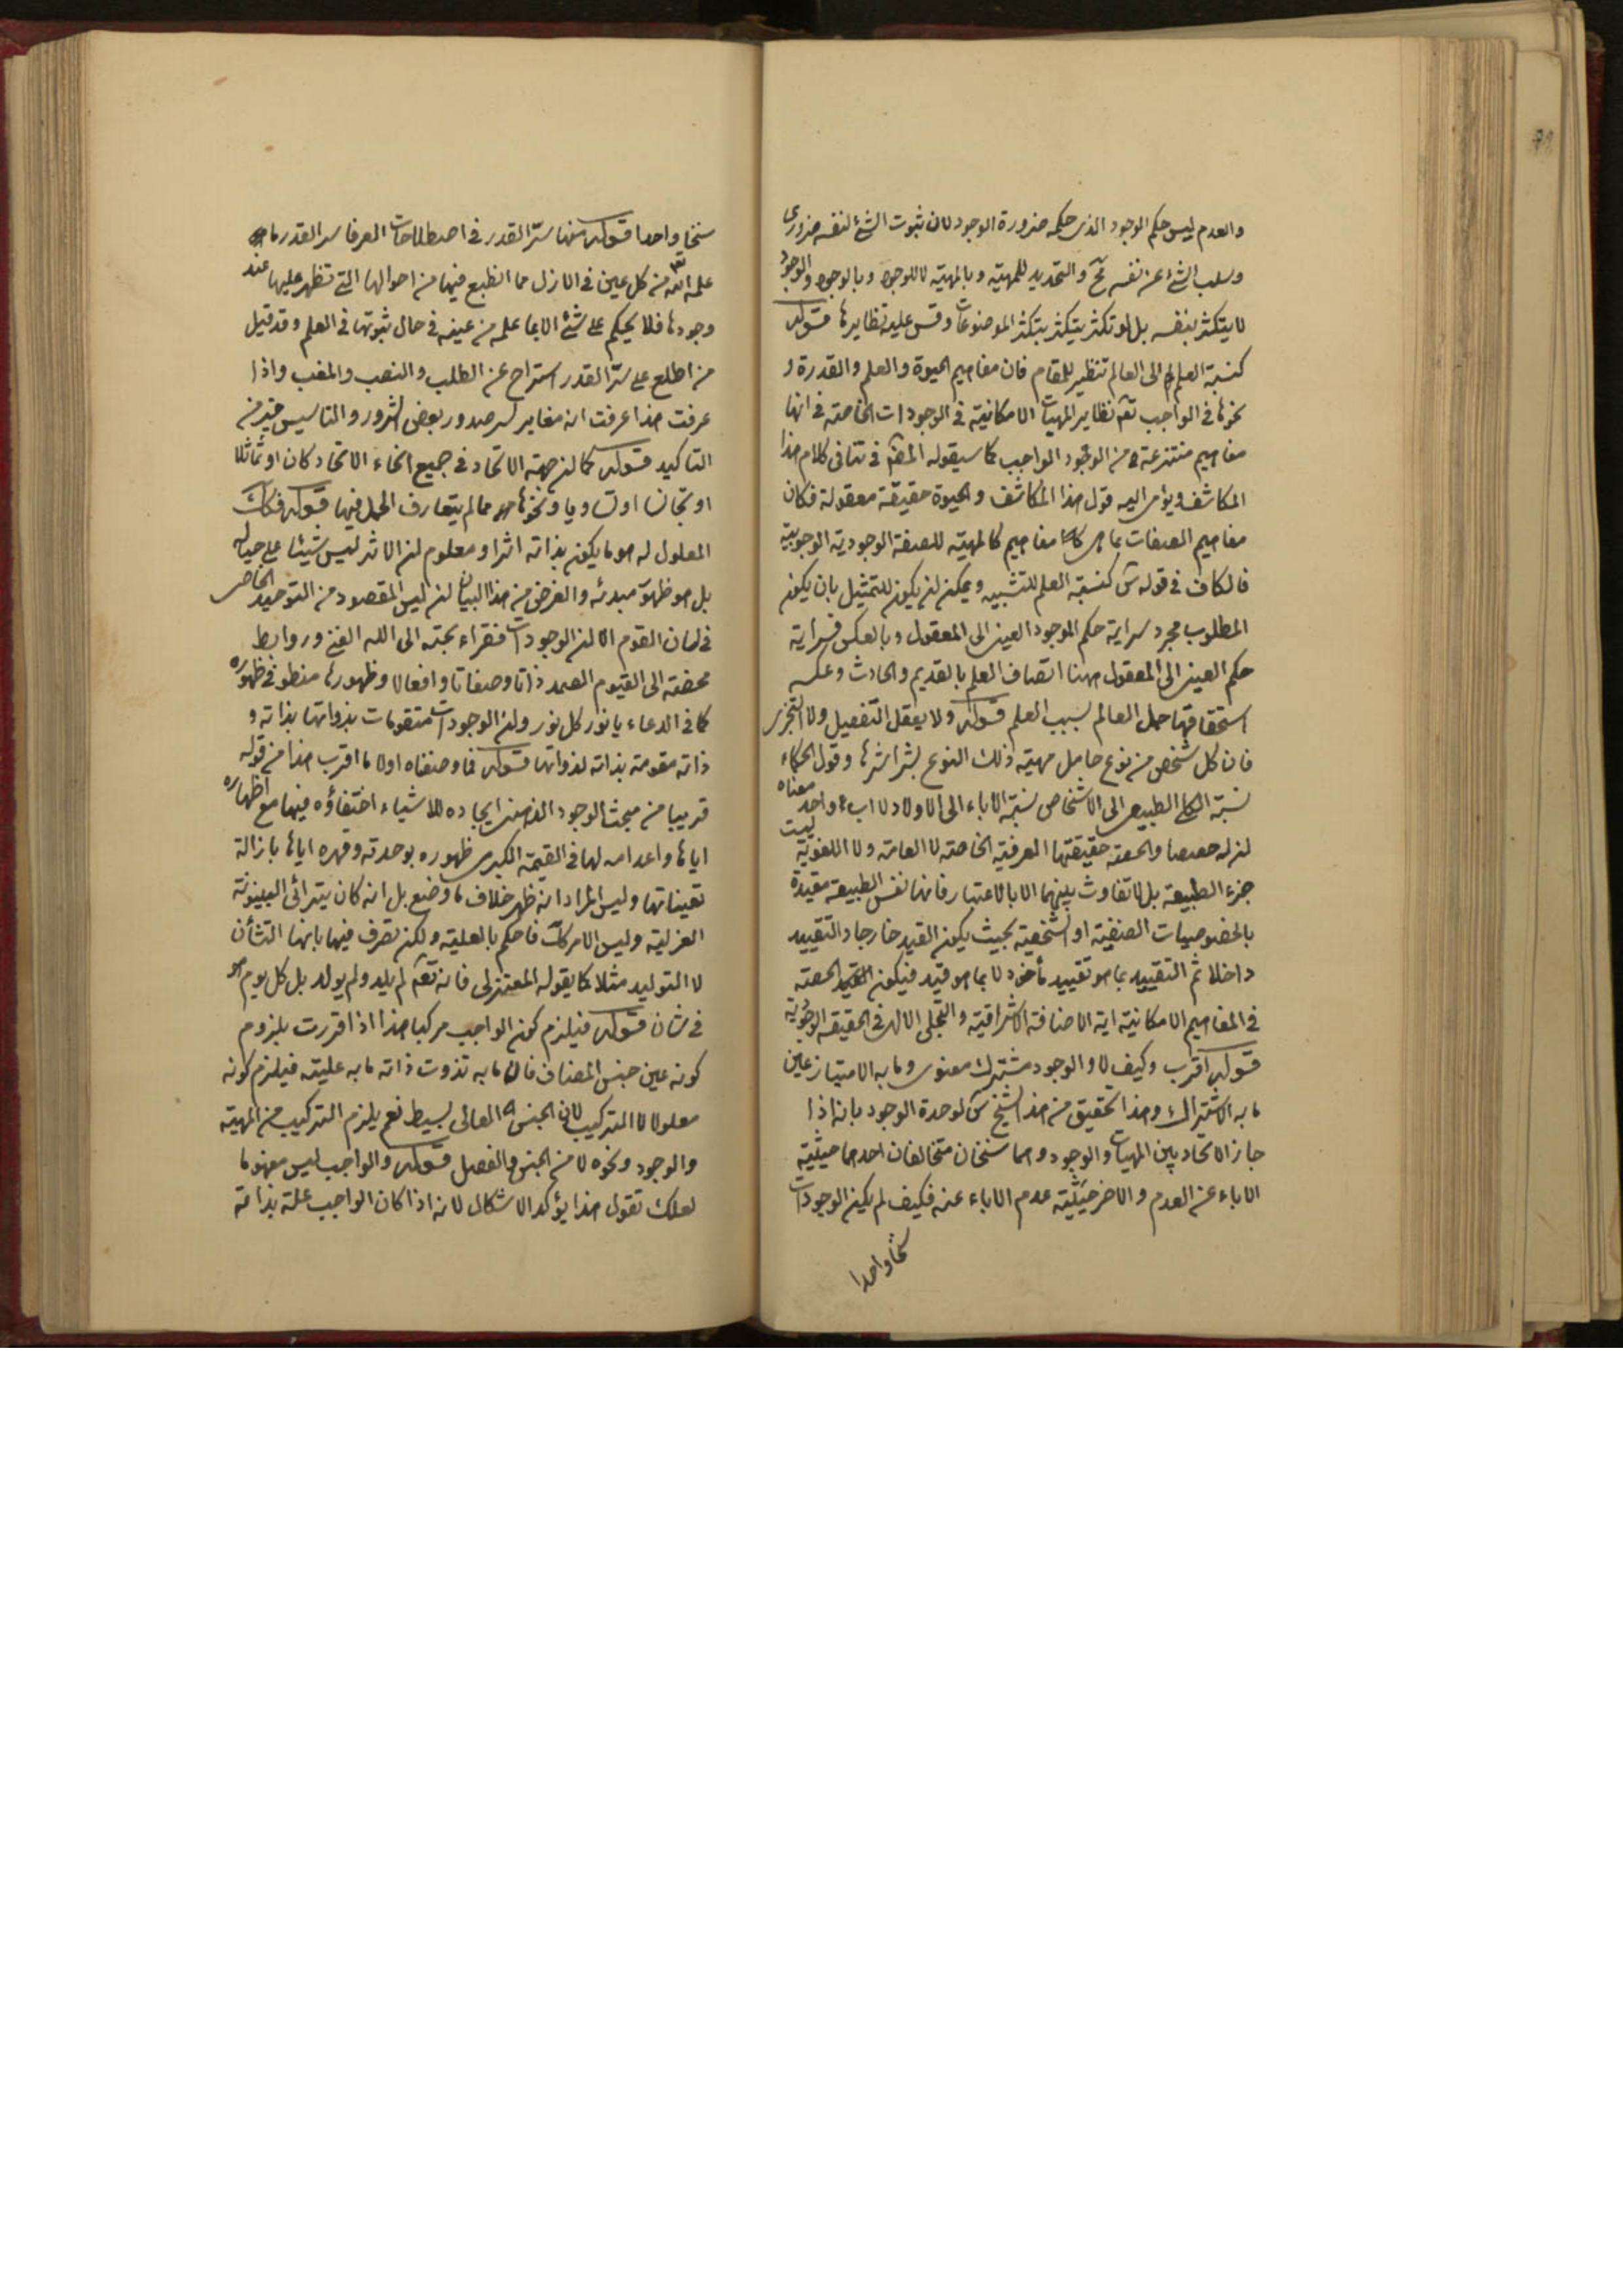 والعدم ليس حكم الوجود الذى حكمه ضرورة الوجود لان ثبوت الشئ لنفسه ضرورى
وسلب الشئ عن نفسه مح والتحديد للمهيته وبالمهيته لا للوجود وبالوجود والوجود
لا يتكثر بنفسه بل لو تكثر يتكثر بتكثر الموضوعات وقس عليه نظايرها قوله
كنسبة العلم الى العالم تنظير للمقام فان مفاهيم الحيوة والعلم والقدرة و
نحوها فى الواجب تعه نظاير المهيات الامكانية فى الوجودات الخاصة فى انها
مفاهيم منتزعة من الوجود الواجب كما سيقوله المصه فى تتافى كلام هذا
المكاشف ويؤمى اليه قول هذا المكاشف والحيوة حقيقة معقولة فكان
مفاهيم الصفات بما هى مفاهيم كالمهيته للصفة الوجودية الوجوبية
فالكاف فى قوله س كنسبة العلم للتشبيه ويمكن لن يكون للتمثيل بان يكون
المطلوب مجرد سراية حكم الموجود العينى الى المعقول وبالعكس فسراية
حكم العينى الى المعقول ههنا اتصاف العلم بالقديم والحادث وعكسه
استحقاقها حمل العالم بسبب العلم قوله ولا يعقل التفصيل ولا التجزى
فان كل شخص من نوع حامل مهيته ذلك النوع بشراشرها وقول الحكماء
نسبة الكلى الطبيعى الى الاشخاص نسبة الاباء الى الاولاد لا اب واحد معناه
لن له حصصا والحصة حقيقتها العرفية الخاصة لا العامة ولا اللغوية ليست
جزء الطبيعة بل لا تفاوت بينهما الا بالاعتبار فانها نفس الطبيعة مقيدة
بالخصوصيات الصنفية او الشخصية بحيث يكون القيد خارجا والتقييد
داخلا ثم التقييد بما هو تقييد مأخوذ لا بما هو قيد فيكون الحصة
فى المفاهيم الامكانية اية الاضافة الاشراقية والتجلى الالهى فى الحقيقة الوجوبية
قوله اقرب وكيف لا والوجود مشترك معنوى وما به الامتياز عين
ما به الاشتراك وهذا تحقيق من هذا الشيخ س لوحدة الوجود بانه اذا
جاز الاتحاد بين المهيات والوجود وهما سنخان متخالفان احدهما حيثية
الاباء عن العدم والاخر حيثية عدم الاباء عنه فكيف لم يكن الوجودات
سنخا واحدا
سنخا واحدا قوله منها سر القدر فى اصطلاحات العرفا سر القدر ما
علمه الله تع من كل عين فى الازل مما انطبع فيها من احوالها التى تظهر عليها عند
وجودها فلا يحكم على شئ الا بما علمه من عينه فى حال ثبوتها فى العلم وقد قيل
من اطلع على سر القدر استراح عن الطلب والنصب والمغب واذا
عرفت هذا عرفت انه مغاير لسر صدور بعض الشرور والتاسيس خير من
التاكيد قوله كما لن جهة الاتحاد فى جميع انحاء الاتحاد كان او تماثلا
او تجانسا او تساويا ونحوها مما لم يتعارف الحمل فيها قوله فكك
المعلول له هو ما يكون بذاته اثرا ومعلوم لن الاثر ليس شيئا على حياله
بل هو ظهور مبدئه والغرض من هذا البيان لن ليس المقصود من التوحيد الخاص
فى لسان القوم الا لن الوجودات فقراء بحتة الى الله الغنى وروابط
محضة الى القيوم الصمد ذاتا وصفاتا وافعالا وظهورها منطو فى ظهوره
كما فى الدعاء يا نور كل نور ولن الوجودات متقومات بذواتها بذاته و
ذاته مقومة بذاته لذواتها قوله فما وصفناه اولا ما اقرب هذا من قوله
قريبا من مبحث الوجود الذهنى ايجاده للاشياء اختفاؤه فيها مع اظهاره
اياها واعدامه لها فى القيمة الكبرى ظهوره بوحدته وقهره اياها بازالة
تعيناتها وليس المراد انه ظهر خلاف ما وضع بل انه كان يترائى البينونة
العزلية وليس الامر كك فاحكم بالعلية ولكن تصرف فيها بانها التشأن
لا التوليد مثلا كما يقوله المعتزلى فانه تعه لم يلد ولم يولد بل كل يوم هو
فى شان قوله فيلزم كون الواجب مركبا هذا اذا قررت بلزوم
كونه عين جنس المضاف فان ما به تذوت ذاته ما به علية فيلزم كونه
معلولا لا التركيب لان الجنس العالى بسيط نعم يلزم التركيب من المهية
والوجود ونحوه لا من الجنس والفصل قوله والواجب ليس مفهوما
لعلك تقول هذا يؤكد الاشكال لانه اذا كان الواجب علة بذاته